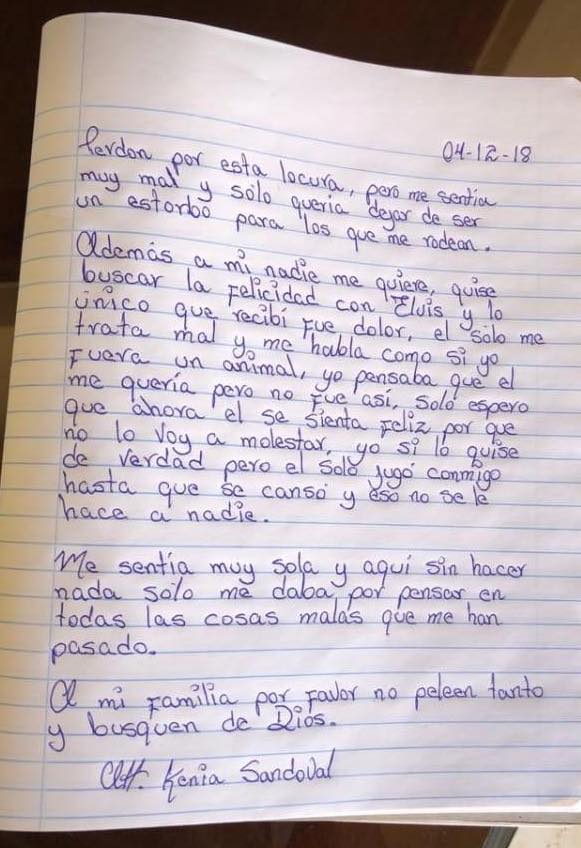 Perdon por esta locura, pero me sentia
04-12-18
muy mal y solo queria dejar de ser
un estorbo para los que me rodean.
Además a mi nadie me quiere, quise
buscar la Felicidad con Elvis y lo
único que recibí Fue dolor, el sólo me
trata mal y me habla como si yo
Fuera un animal, yo pensaba que el
me quería pero no Fue así, solo espero
que ahora el se sienta Feliz por que
no lo voy a molestar, yo si lo quise
de verdad pero el solo jugó conmigo
hasta que se canso y eso no se le
hace a nadie.
Me sentia muy sola y aquí sin hacer
nada solo me daba por pensar en
todas las cosas malas que me han
pasado.
A mi Familia por Favor no peleen tanto
y busquen de Dios.
Att. Kenia Sandoval